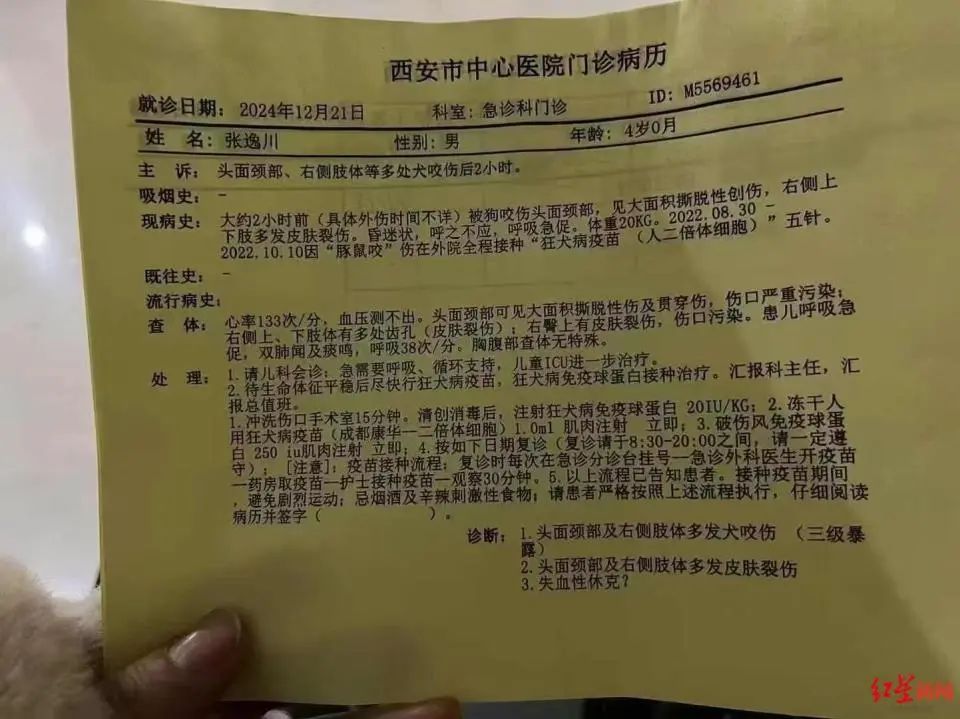 西安市中心医院门诊病历
就诊日期: 2024年12月21日 科室: 急诊科门诊 ID: M5569461
姓 名: 张逸川 性别: 男 年龄: 4岁0月
主 诉: 头面颈部、右侧肢体等多处犬咬伤后2小时。
吸烟史: -
现病史: 大约2小时前（具体外伤时间不详）被狗咬伤头面颈部，见大面积撕脱性创伤，右侧上
下肢多发皮肤裂伤。昏迷状，呼之不应，呼吸急促。体重20KG。2022.08.30 -
2022.10.10因“豚鼠咬”伤在外院全程接种“狂犬病疫苗 （人二倍体细胞）”五针。
既往史: -
流行病史:
查 体: 心率133次/分，血压测不出。头面颈部可见大面积撕脱性伤及贯穿伤，伤口严重污染；
右侧上、下肢体有多处齿孔（皮肤裂伤）；右臀上有皮肤裂伤，伤口污染。患儿呼吸急
促，双肺闻及痰鸣，呼吸38次/分。胸腹部查体无特殊。
处 理: 1.请儿科会诊：急需要呼吸、循环支持，儿童ICU进一步治疗。
2.待生命体征平稳后尽快行狂犬病疫苗，狂犬病免疫球蛋白接种治疗。汇报科主任，汇
报总值班。
1.冲洗伤口手术室15分钟。清创消毒后，注射狂犬病免疫球蛋白 20IU/KG；2.冻干人
用狂犬病疫苗（成都康华—二倍体细胞）1.0ml 肌肉注射 立即；3.破伤风免疫球蛋
白 250 iu肌肉注射 立即；4.按如下日期复诊（复诊请于8:30-20:00之间，请一定遵
守）； [注意]：疫苗接种流程：复诊时每次在急诊分诊台挂号—急诊外科医生开疫苗
—药房取疫苗—护士接种疫苗—观察30分钟。5.以上流程已告知患者。接种疫苗期间
，避免剧烈运动；忌烟酒及辛辣刺激性食物；请患者严格按照上述流程执行，仔细阅读
病历并签字（ ）。
诊断: 1.头面颈部及右侧肢体多发犬咬伤 （三级暴
露）
2.头面颈部及右侧肢体多发皮肤裂伤
3.失血性休克？
红星新闻